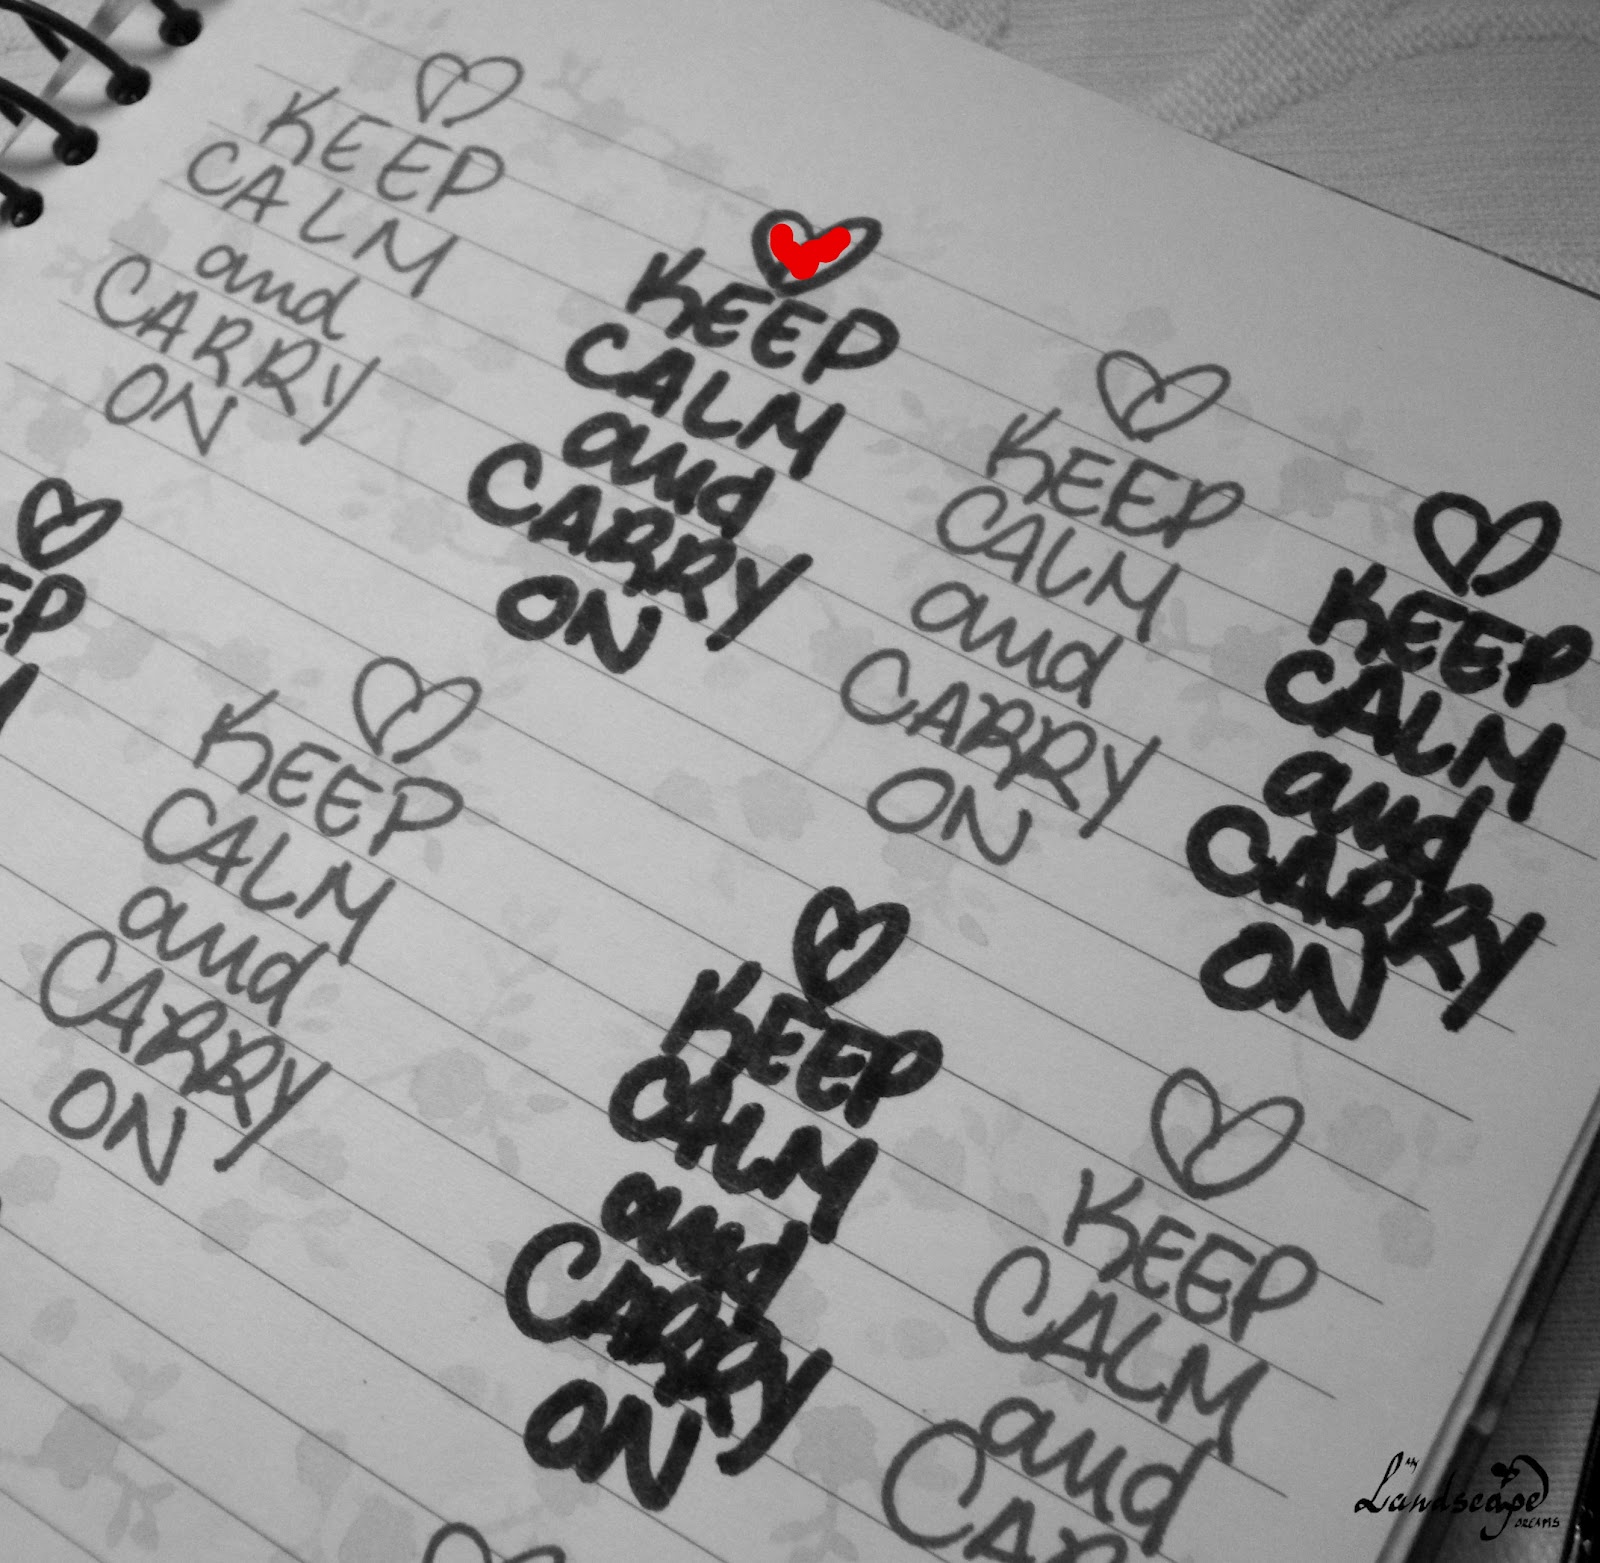 KEEP
CALM
and
CARRY
ON
KEEP
CALM
and
CARRY
ON
KEEP
CALM
and
CARRY
ON
KEEP
CALM
and
CARRY
ON
EP
M
KEEP
CALM
and
CARRY
ON
KEEP
CALM
and
CARRY
ON
KEEP
CALM
and
CAR
My
Landscape
DREAMS